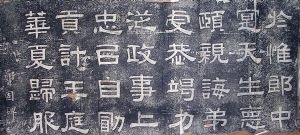 於惟郎中
寔天生德
頎親誨弟
虔恭竭力
政事上
忠㠯自勖
貢計王庭
華夏歸服